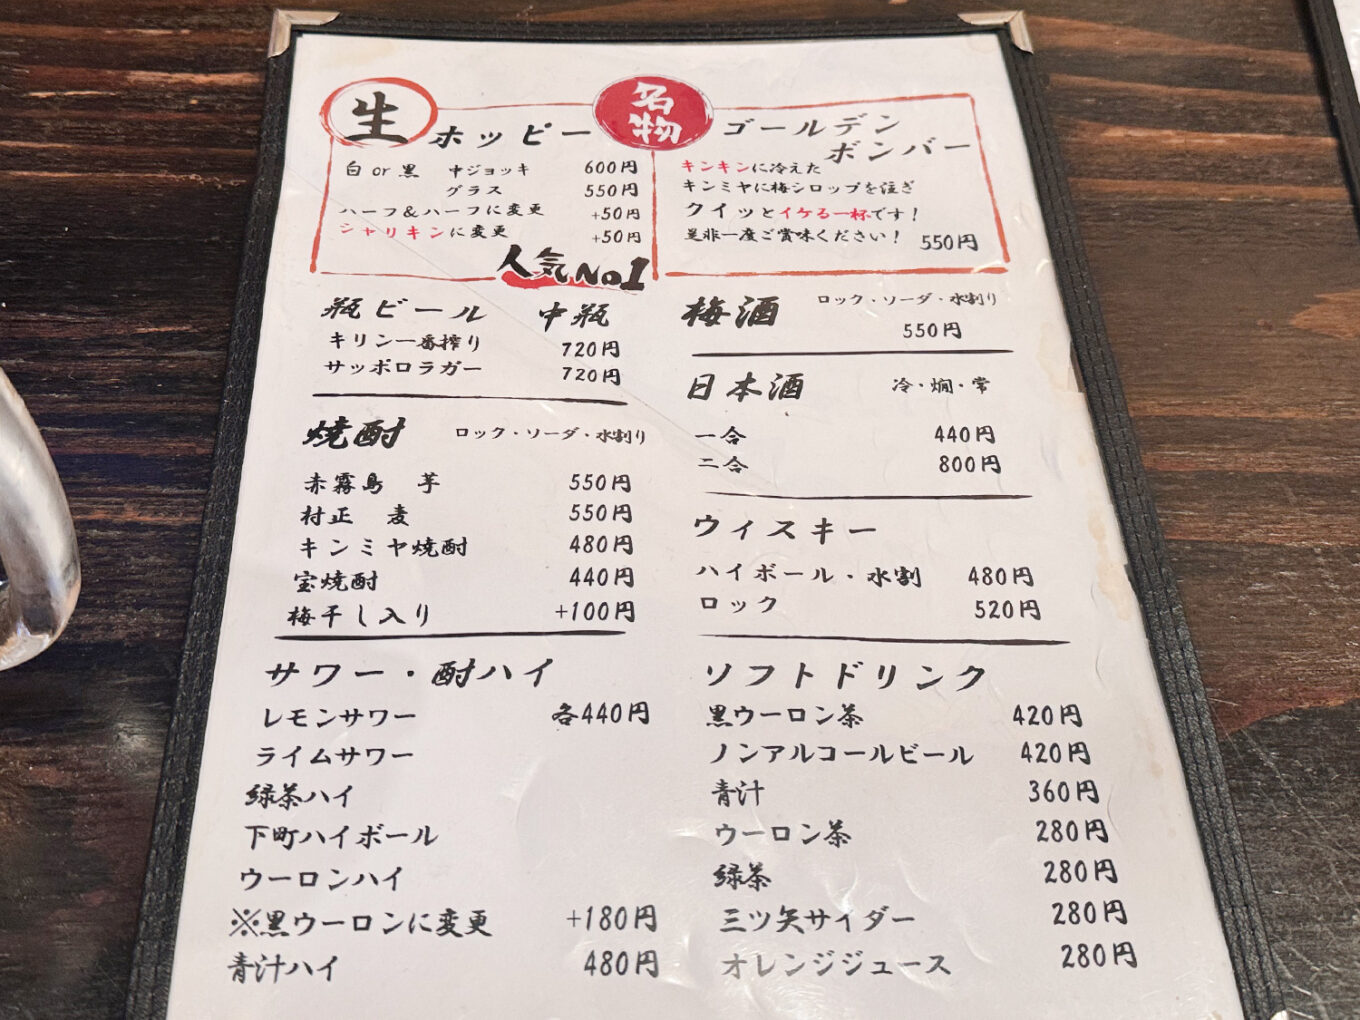 生 ホッピー
白 or 黒 中ジョッキ 600円
グラス 550円
ハーフ&ハーフに変更 +50円
シャリキンに変更 +50円
人気No1
名物
ゴールデン
ボンバー
キンキンに冷えた
キンミヤに梅シロップを注ぎ
クイッとイケる一杯です!
是非一度ご賞味ください! 550円
瓶ビール 中瓶
キリン一番搾り 720円
サッポロラガー 720円
焼酎 ロック・ソーダ・水割り
赤霧島 芋 550円
村正 麦 550円
キンミヤ焼酎 480円
宝焼酎 440円
梅干し入り +100円
サワー・酎ハイ
レモンサワー 各440円
ライムサワー
緑茶ハイ
下町ハイボール
ウーロンハイ
※黒ウーロンに変更 +180円
青汁ハイ 480円
梅酒 ロック・ソーダ・水割り
550円
日本酒 冷・燗・常
一合 440円
二合 800円
ウィスキー
ハイボール・水割 480円
ロック 520円
ソフトドリンク
黒ウーロン茶 420円
ノンアルコールビール 420円
青汁 360円
ウーロン茶 280円
緑茶 280円
三ツ矢サイダー 280円
オレンジジュース 280円